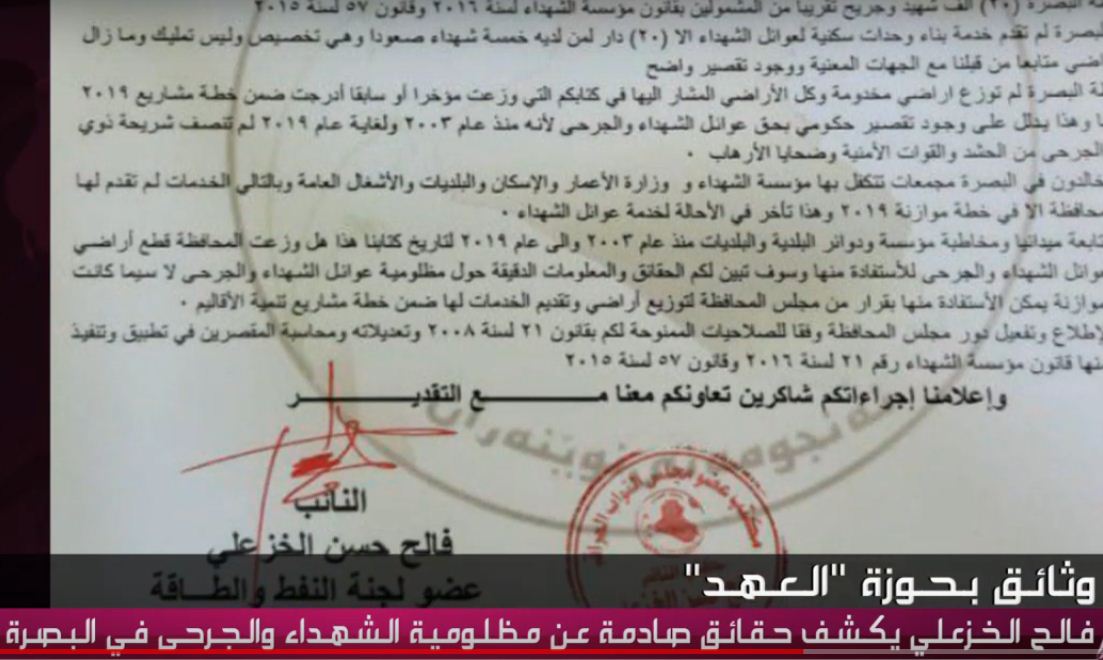 البصرة (٢٠) الف شهيد وجريح تقريبا من المشمولين بقانون مؤسسة الشهداء لسنة ٢٠١٦ وقانون ٥٧ لسنة ٢٠١٥
البصرة لم تقدم خدمة بناء وحدات سكنية لعوائل الشهداء الا (٢٠) دار لمن لديه خمسة شهداء صعودا وهي تخصيص وليس تمليك وما زال
اضي متابعا من قبلنا مع الجهات المعنية ووجود تقصير واضح
لة البصرة لم توزع اراضي مخدومة وكل الأراضي المشار اليها في كتابكم التي وزعت مؤخرا أو سابقا أدرجت ضمن خطة مشاريع ٢٠١٩
ا وهذا يدلل على وجود تقصير حكومي بحق عوائل الشهداء والجرحى لأنه منذ عام ٢٠٠٣ ولغاية عام ٢٠١٩ لم تنصف شريحة ذوي
الجرحى من الحشد والقوات الأمنية وضحايا الأرهاب ٠
خالدون في البصرة مجمعات تتكفل بها مؤسسة الشهداء و وزارة الأعمار والإسكان والبلديات والأشغال العامة وبالتالي الخدمات لم تقدم لها
محافظة الا في خطة موازنة ٢٠١٩ وهذا تأخر في الأحالة لخدمة عوائل الشهداء ٠
تابعة ميدانيا ومخاطبة مؤسسة ودوائر البلدية والبلديات منذ عام ٢٠٠٣ والى عام ٢٠١٩ لتاريخ كتابنا هذا هل وزعت المحافظة قطع أراضي
عوائل الشهداء والجرحى للأستفادة منها وسوف تبين لكم الحقائق والمعلومات الدقيقة حول مظلومية عوائل الشهداء والجرحى لا سيما كانت
موازنة يمكن الأستفادة منها بقرار من مجلس المحافظة لتوزيع أراضي وتقديم الخدمات لها ضمن خطة مشاريع تنمية الأقاليم ٠
لإطلاع وتفعيل دور مجلس المحافظة وفقا للصلاحيات الممنوحة لكم بقانون ٢١ لسنة ٢٠٠٨ وتعديلاته ومحاسبة المقصرين في تطبيق وتنفيذ
منها قانون مؤسسة الشهداء رقم ٢١ لسنة ٢٠١٦ وقانون ٥٧ لسنة ٢٠١٥
وإعلامنا إجراءاتكم شاكرين تعاونكم معنا مـــع التقديـــر
النائب
فالح حسن الخزعلي
عضو لجنة النفط والطاقة
مكتب عضو مجلس النواب العراقي
وثائق بحوزة "العهد"
فالح الخزعلي يكشف حقائق صادمة عن مظلومية الشهداء والجرحى في البصرة